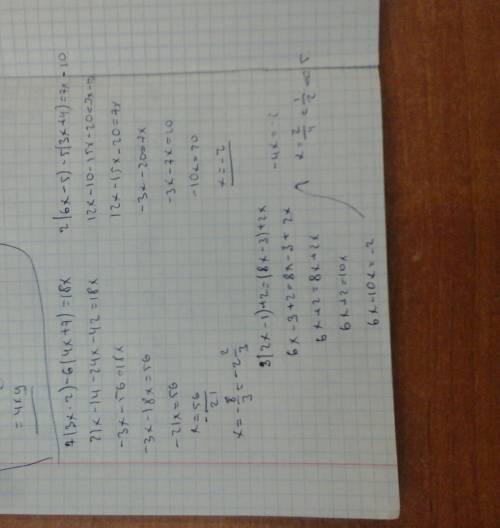 = 4xy
7(3x-2)-6(4x+7)=18x
21x-14-24x-42=18x
-3x-56=18x
-3x-18x=56
-21x=56
x=-56/21
x=-8/3=-2 2/3
2(6x-5)-5(3x+4)=7x-10
12x-10-15x-20=7x-10
12x-15x-20=7x
-3x-20=7x
-3x-7x=20
-10x=20
x=-2
3(2x-1)+2=(8x-3)+2x
6x-3+2=8x-3+2x
6x+2=8x+2x
6x+2=10x
6x-10x=-2
-4x=-2
x=2/4=1/2=0,5